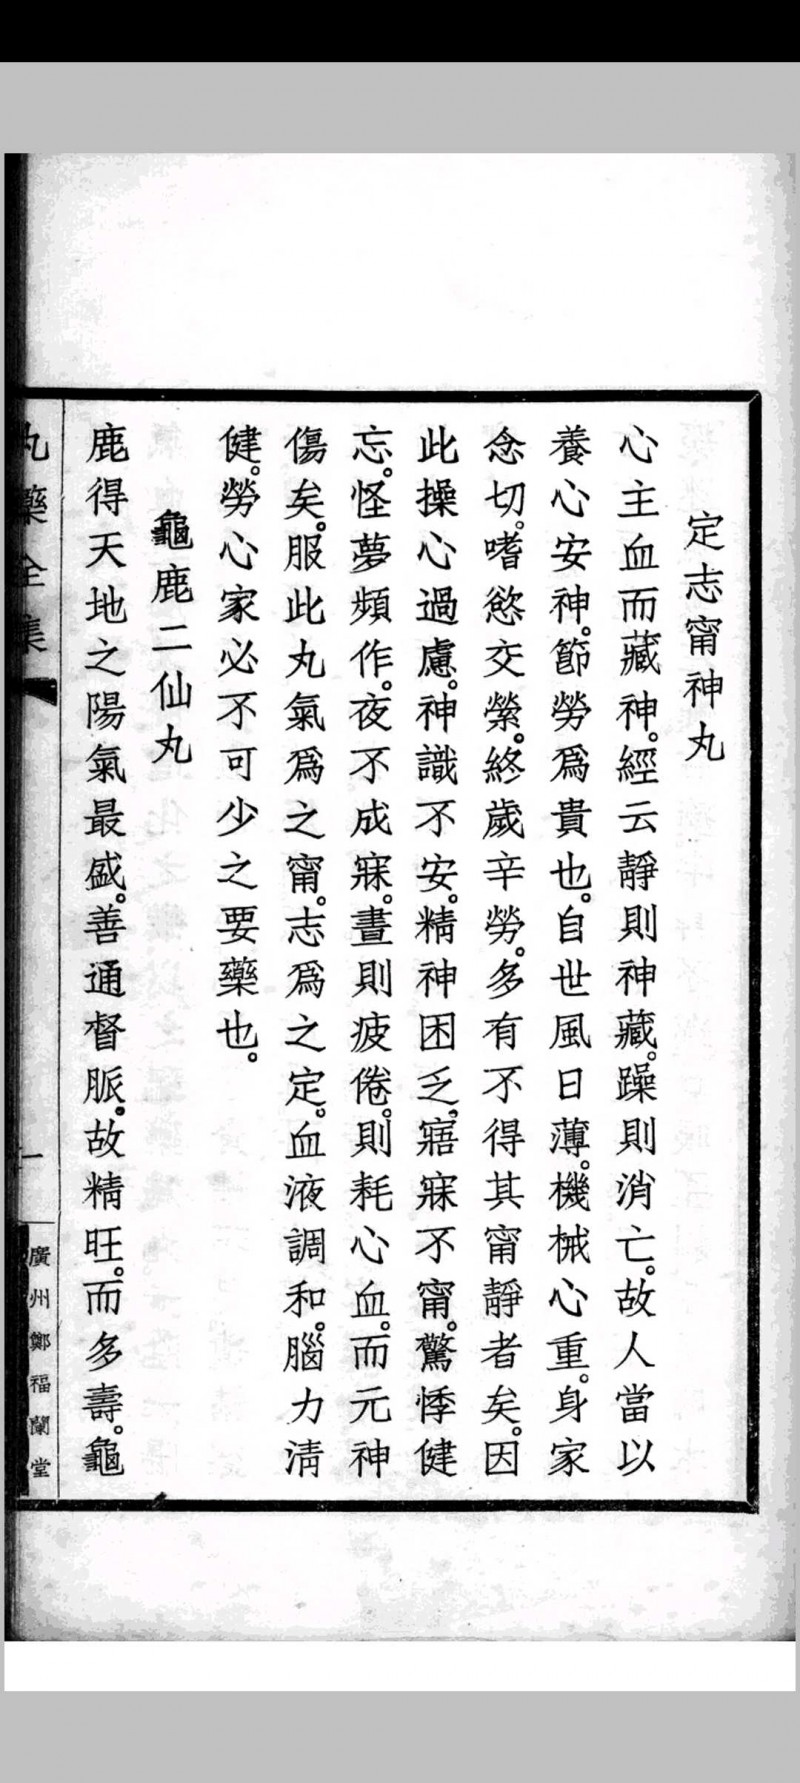 定志甯神丸
心主血而藏神。經云靜則神藏。躁則消亡。故人當以
養心安神。節勞爲貴也。自世風日薄。機械心重。身家
念切。嗜慾交縈。終歲辛勞。多有不得其甯靜者矣。因
此操心過慮。神識不安。精神困乏。寤寐不甯。驚悸健
忘。怪夢頻作。夜不成寐。晝則疲倦。則耗心血。而元神
傷矣。服此丸氣爲之甯。志爲之定。血液調和。腦力淸
健。勞心家必不可少之要藥也。
龜鹿二仙丸
鹿得天地之陽氣最盛。善通督脈。故精旺。而多壽。龜
丸藥全集
一
廣州鄭福蘭堂